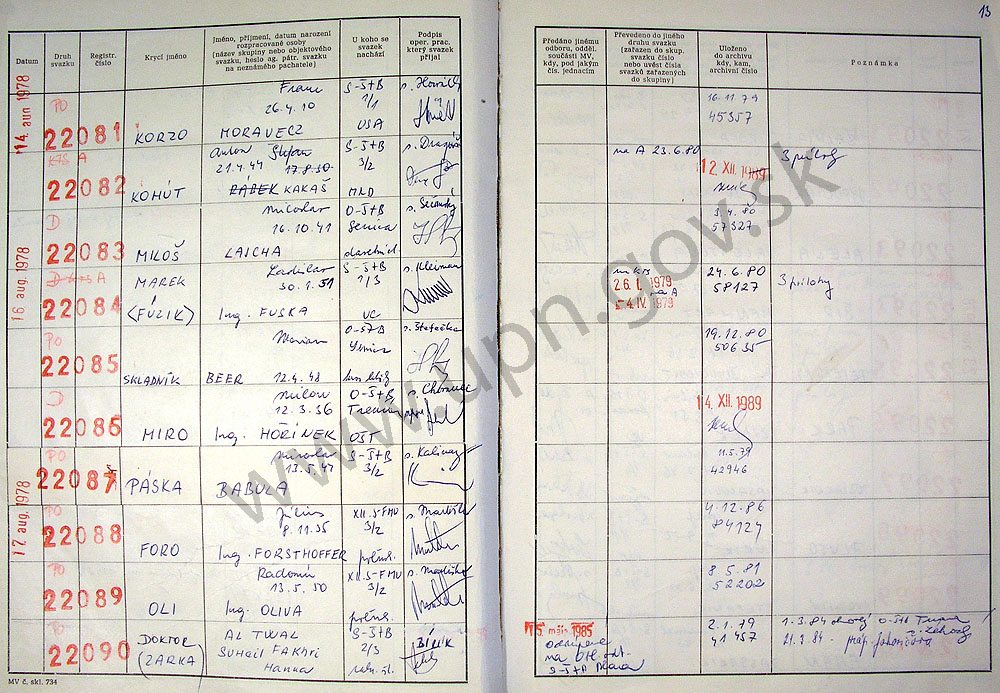 13
Datum
Druh svazku
Registr. číslo
Krycí jméno
Jméno, příjmení, datum narození
rozpracované osoby
(název skupiny nebo objektového
svazku, heslo ag. pátr. svazku
na neznámého pachatele)
U koho se
svazek
nachází
Podpis
oper. prac.
který svazek
přijal
Předáno jinému
odboru, odděl.
součásti MV,
kdy, pod jakým
čís. jednacím
Převedeno do jiného
druhu svazku
(zařazen do skup.
svazku číslo
nebo uvést čísla
svazků zařazených
do skupiny)
Uloženo
do archivu
kdy, kam,
archivní číslo
Poznámka
14. aug 1978
PO
22081
KORZO
Franc
26.4.10
MORAVECZ
S-ŠtB
1/1
USA
s. Horváth
16.11.79
45357
A
22082
KOHÚT
Anton Štefan
21.4.44 17.8.30
KAKAŠ
S-ŠtB
3/2
na A 23.6.80
12. XII. 1989
3 prílohy
16 aug. 1978
D
22083
MILOŠ
Miroslav
16.10.41
LAICHA
O-ŠtB
Senica
3.4.80
57327
A
22084
MAREK
(FÚZIK)
Ladislav
30.1.51
Ing. FUSKA
S-ŠtB
1/3
VC
s. Kleiman
2.6. I. 1979
na A
5 4. IV. 1979
24.6.80
58127
3 prílohy
PO
22085
SKLADNÍK
Marian
BEER 12.4.48
O-ŠTB
s. Štefaňka
19.12.80
50635
D
22086
MIRO
Milan
12.3.36
Ing. HOŘÍNEK
O-ŠtB
OŠT
14. XII. 1989
17 aug. 1978
PO
22087
PÁSKA
Miroslav
13.5.47
BABULA
S-ŠtB
3/2
s. Kalinay
11.5.79
42946
PO
22088
FORO
Július
8.11.35
Ing. FORSTHOFFER
XII.S-FMV
3/2
4.12.86
84127
PO
22089
OLI
Radomír
13.5.50
Ing. OLIVA
XII.S-FMV
3/2
8.5.81
52202
PO
22090
DOKTOR
(ZARKA)
AL TWAL
Suhail FAKHRI
Hanna
S-ŠtB
2/3
s. BÍLIK
15. mája 1985
S-ŠtB
2.1.79
41457
1.3.84
21.3.84
MV č. skl. 734
www.upn.gov.sk